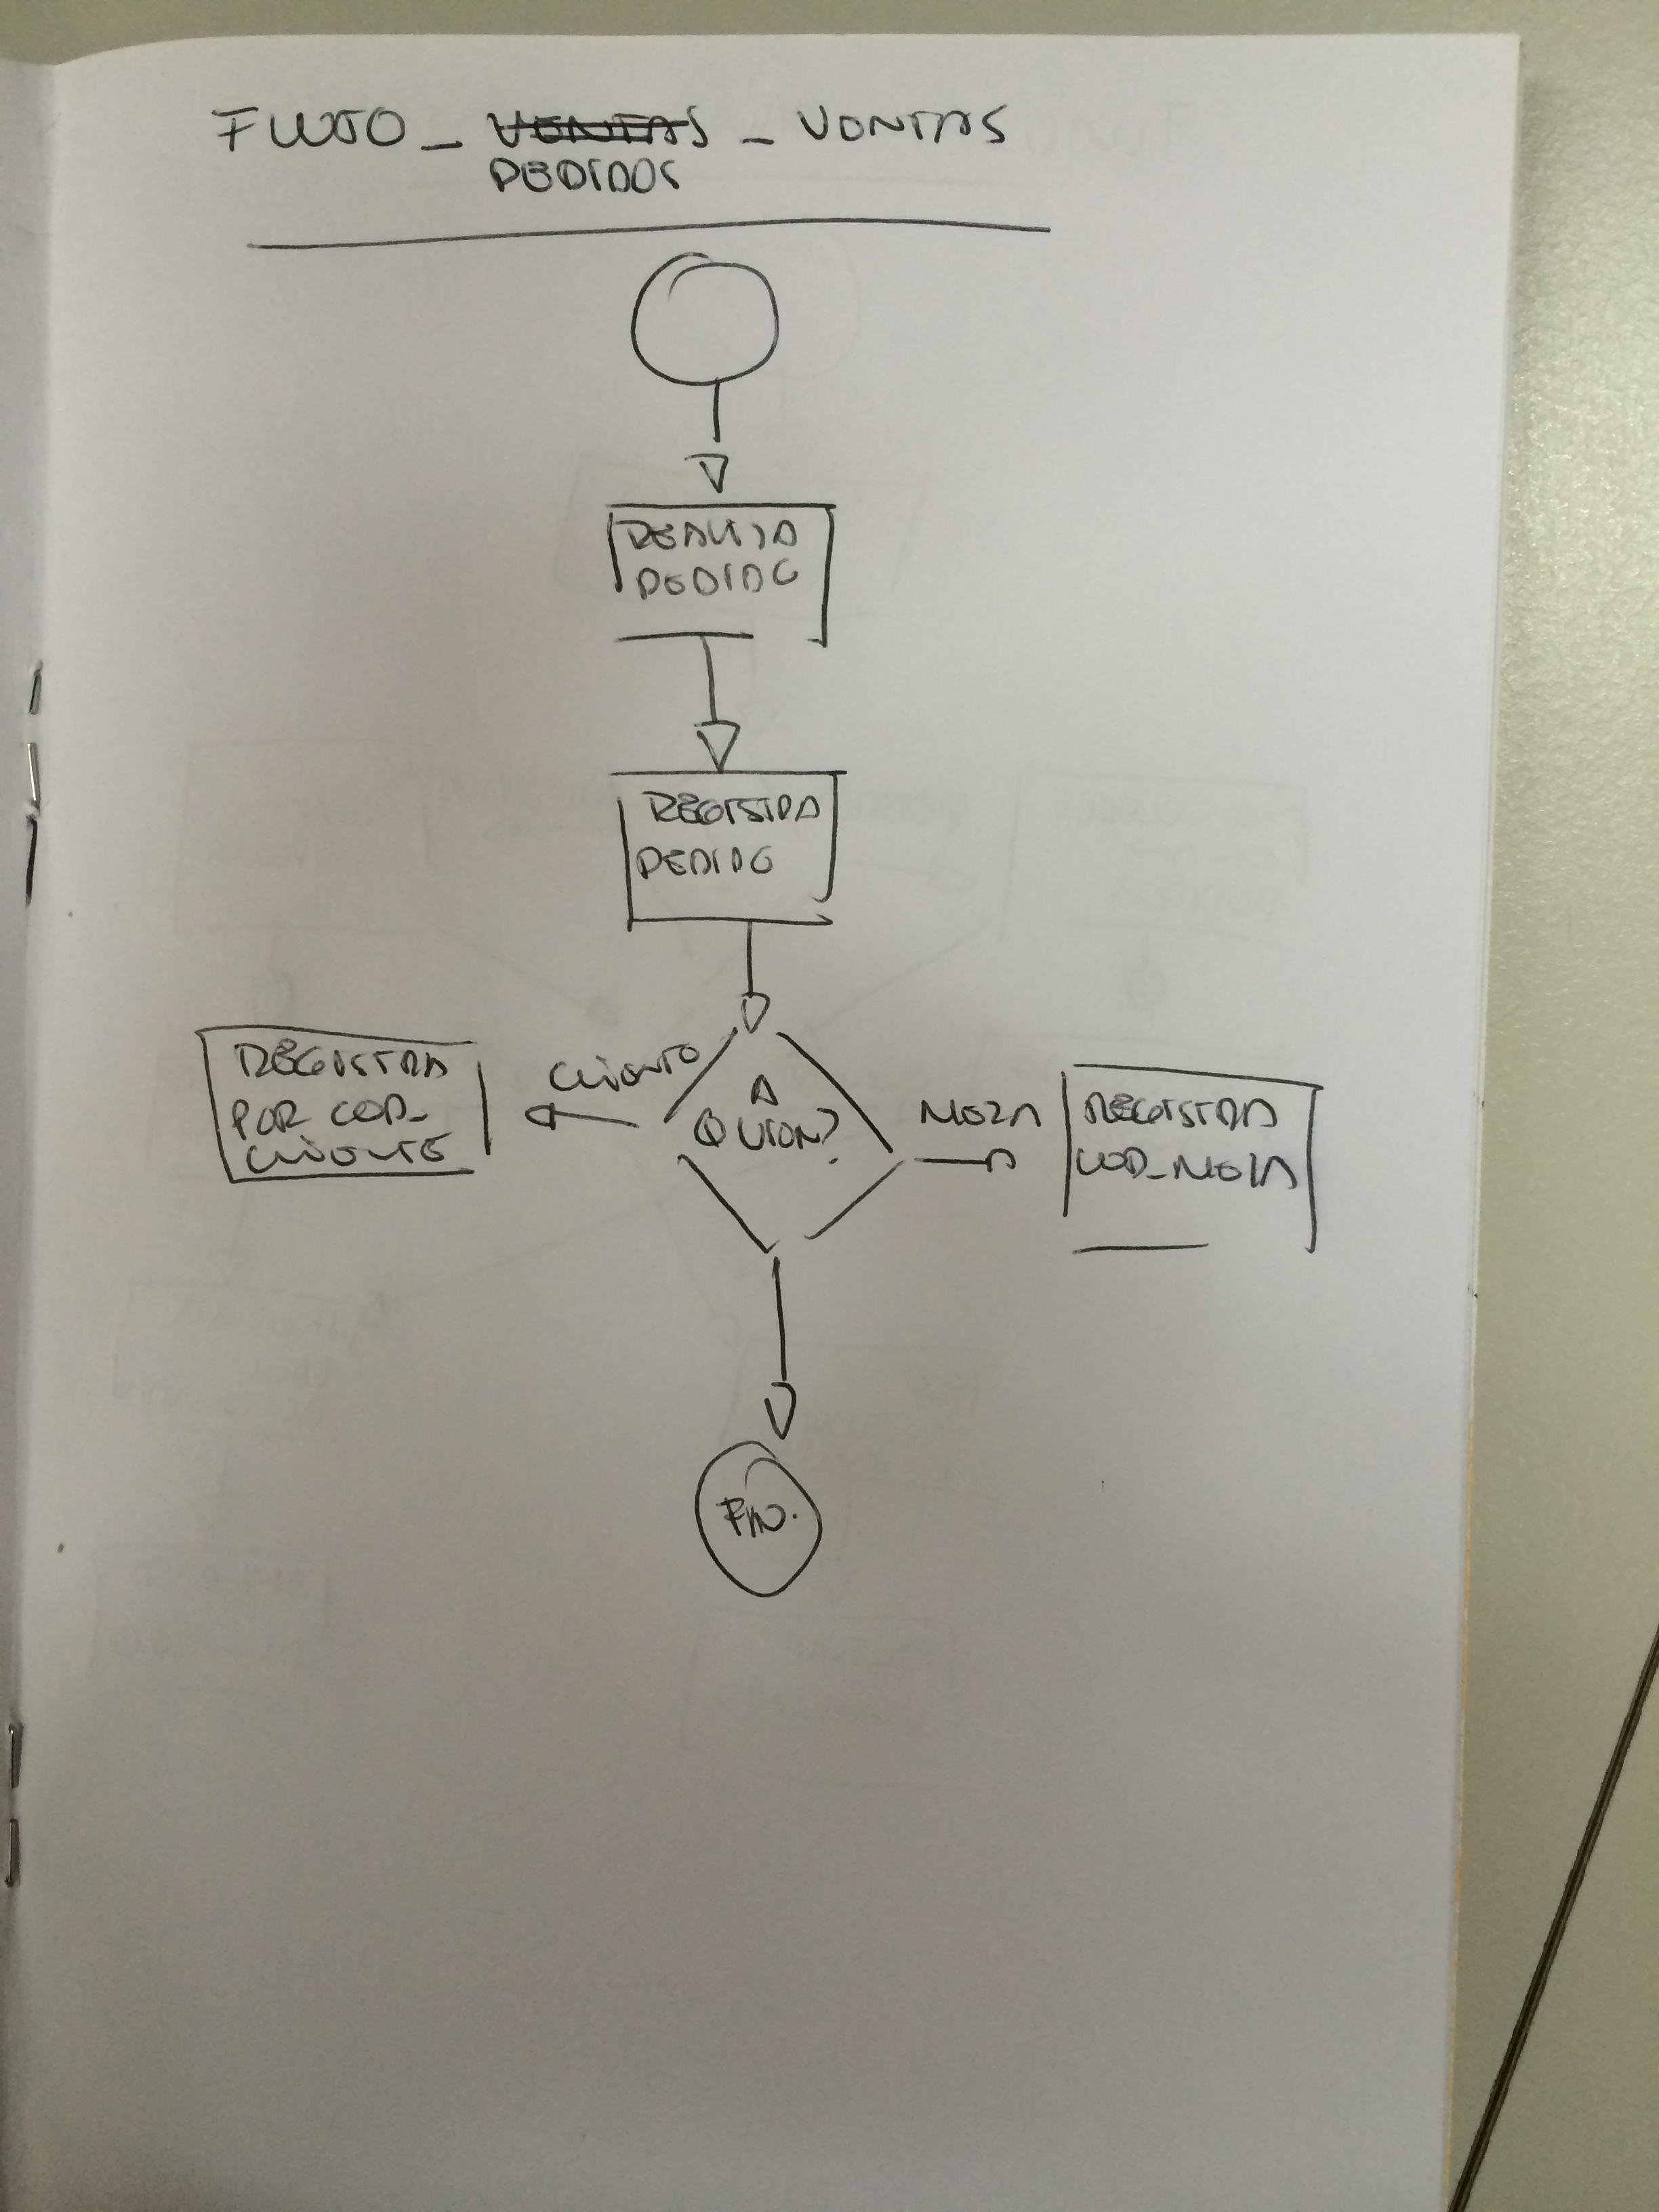 FLUJO_ VENTAS _ VENTAS
PEDIDOS
REALIZA
PEDIDO
REGISTRA
PEDIDO
CLIENTE
A
QUIEN?
MEZA
REGISTRA
POR COD_
CLIENTE
REGISTRA
COD_MEZA
FIN.